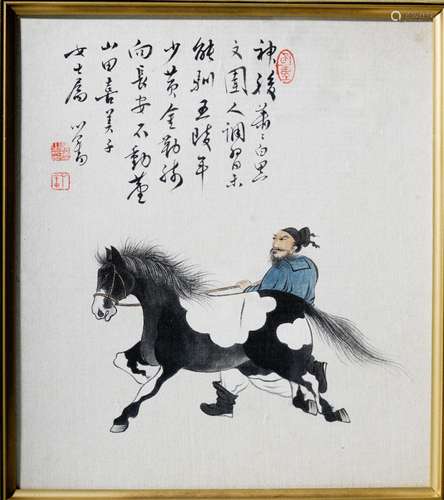 神駿蕭〻白黑
文圉人調習未
能馴五陵年
少黃金勒騎
向長安不動塵
山田喜美子
女士屬 心畬